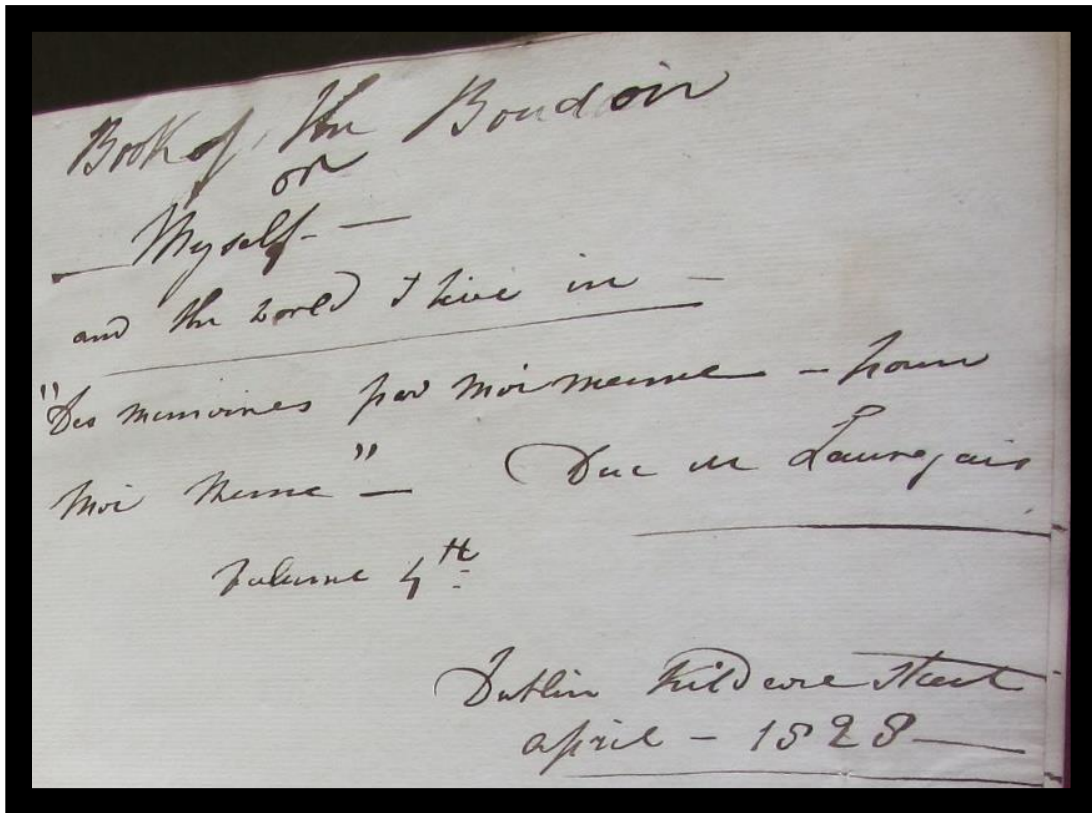 Book of the Boudoir
or
— Myself — —
and the world I live in —
"Des memoires par moi meme — pour
moi meme" — Duc de Lauragais
Volume 4th
Dublin Kildare Street
april — 1828 —